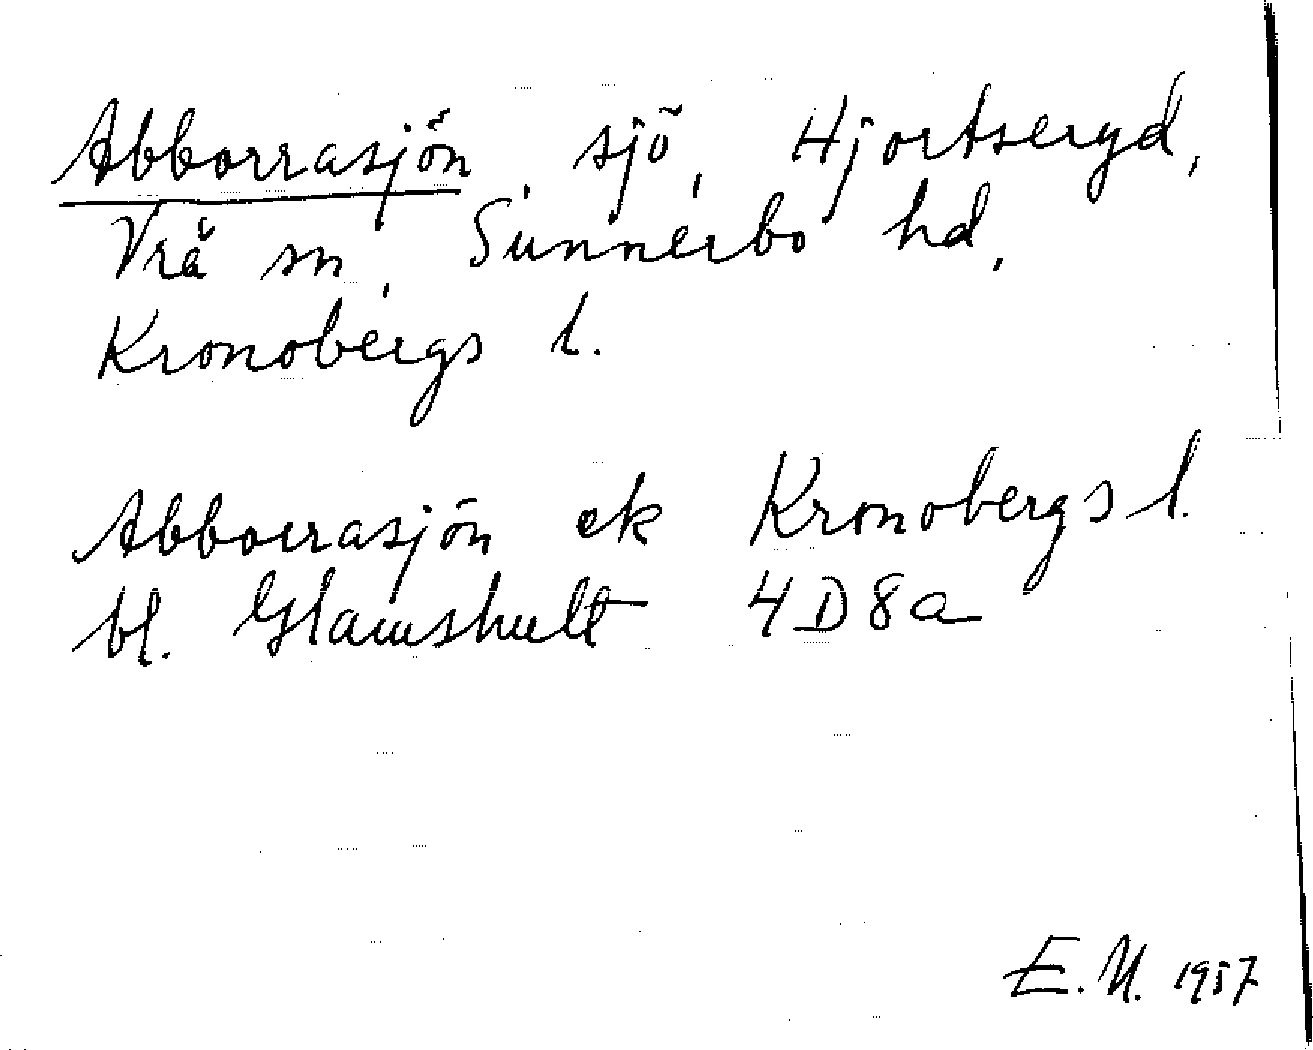 Abborrasjön, sjö, Hjortseryd,
Vrå sn, Sunnerbo hd,
Kronobergs l.
Abborrasjön ek Kronobergs l.
bl. Glamshult 4D8a
E.N. 1957